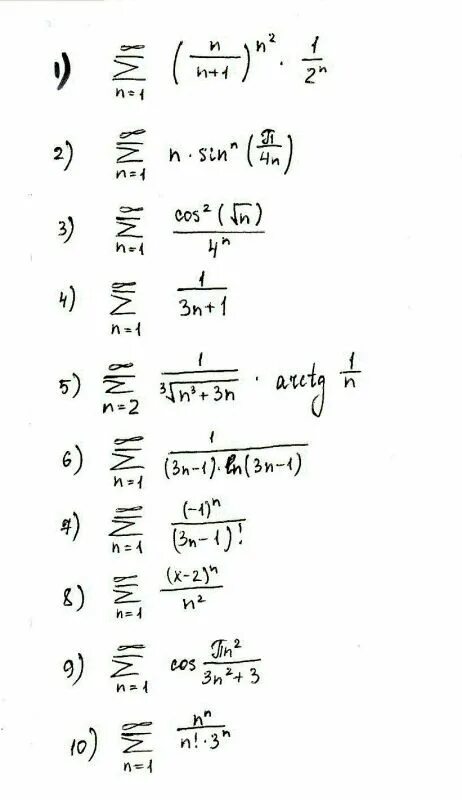 1) ∞∑n=1 (n/(n+1))^(n²) · 1/2ⁿ
2) ∞∑n=1 n · sinⁿ(π/4n)
3) ∞∑n=1 cos²(√n)/4ⁿ
4) ∞∑n=1 1/(3n+1)
5) ∞∑n=2 1/∛(n³+3n) · arctg 1/n
6) ∞∑n=1 1/((3n-1)·ln(3n-1))
7) ∞∑n=1 (-1)ⁿ/(3n-1)!
8) ∞∑n=1 (x-2)ⁿ/n²
9) ∞∑n=1 cos πn²/(3n²+3)
10) ∞∑n=1 nⁿ/(n!·3ⁿ)